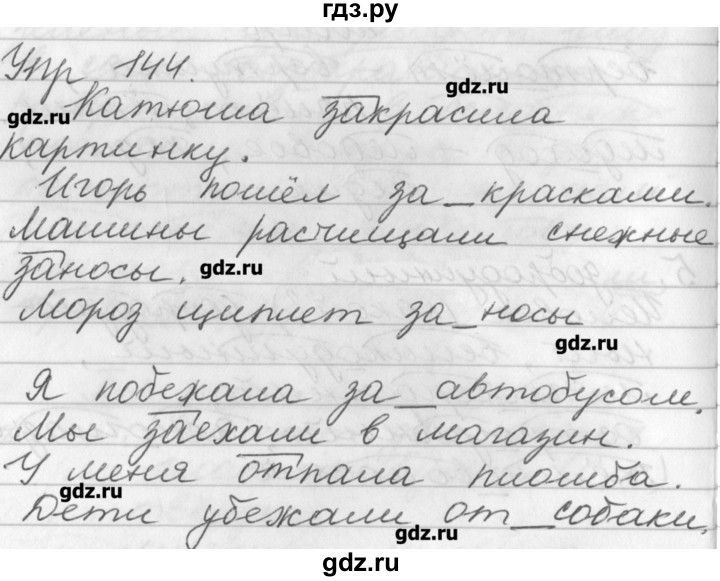 гдз.ру
Упр 144.
Катюша закрасила
gdz.ru
gdz.ru
картинку.
Игорь пошёл за_красками.
Машины расчищали снежные
заносы.
gdz.ru
Мороз щиплет за_носы
gdz.ru
Я побежала за_автобусом.
Мы заехали в магазин.
У меня отпала пломба.
gdz.ru
Дети убежали от_собаки.
gdz.ru
gdz.ru